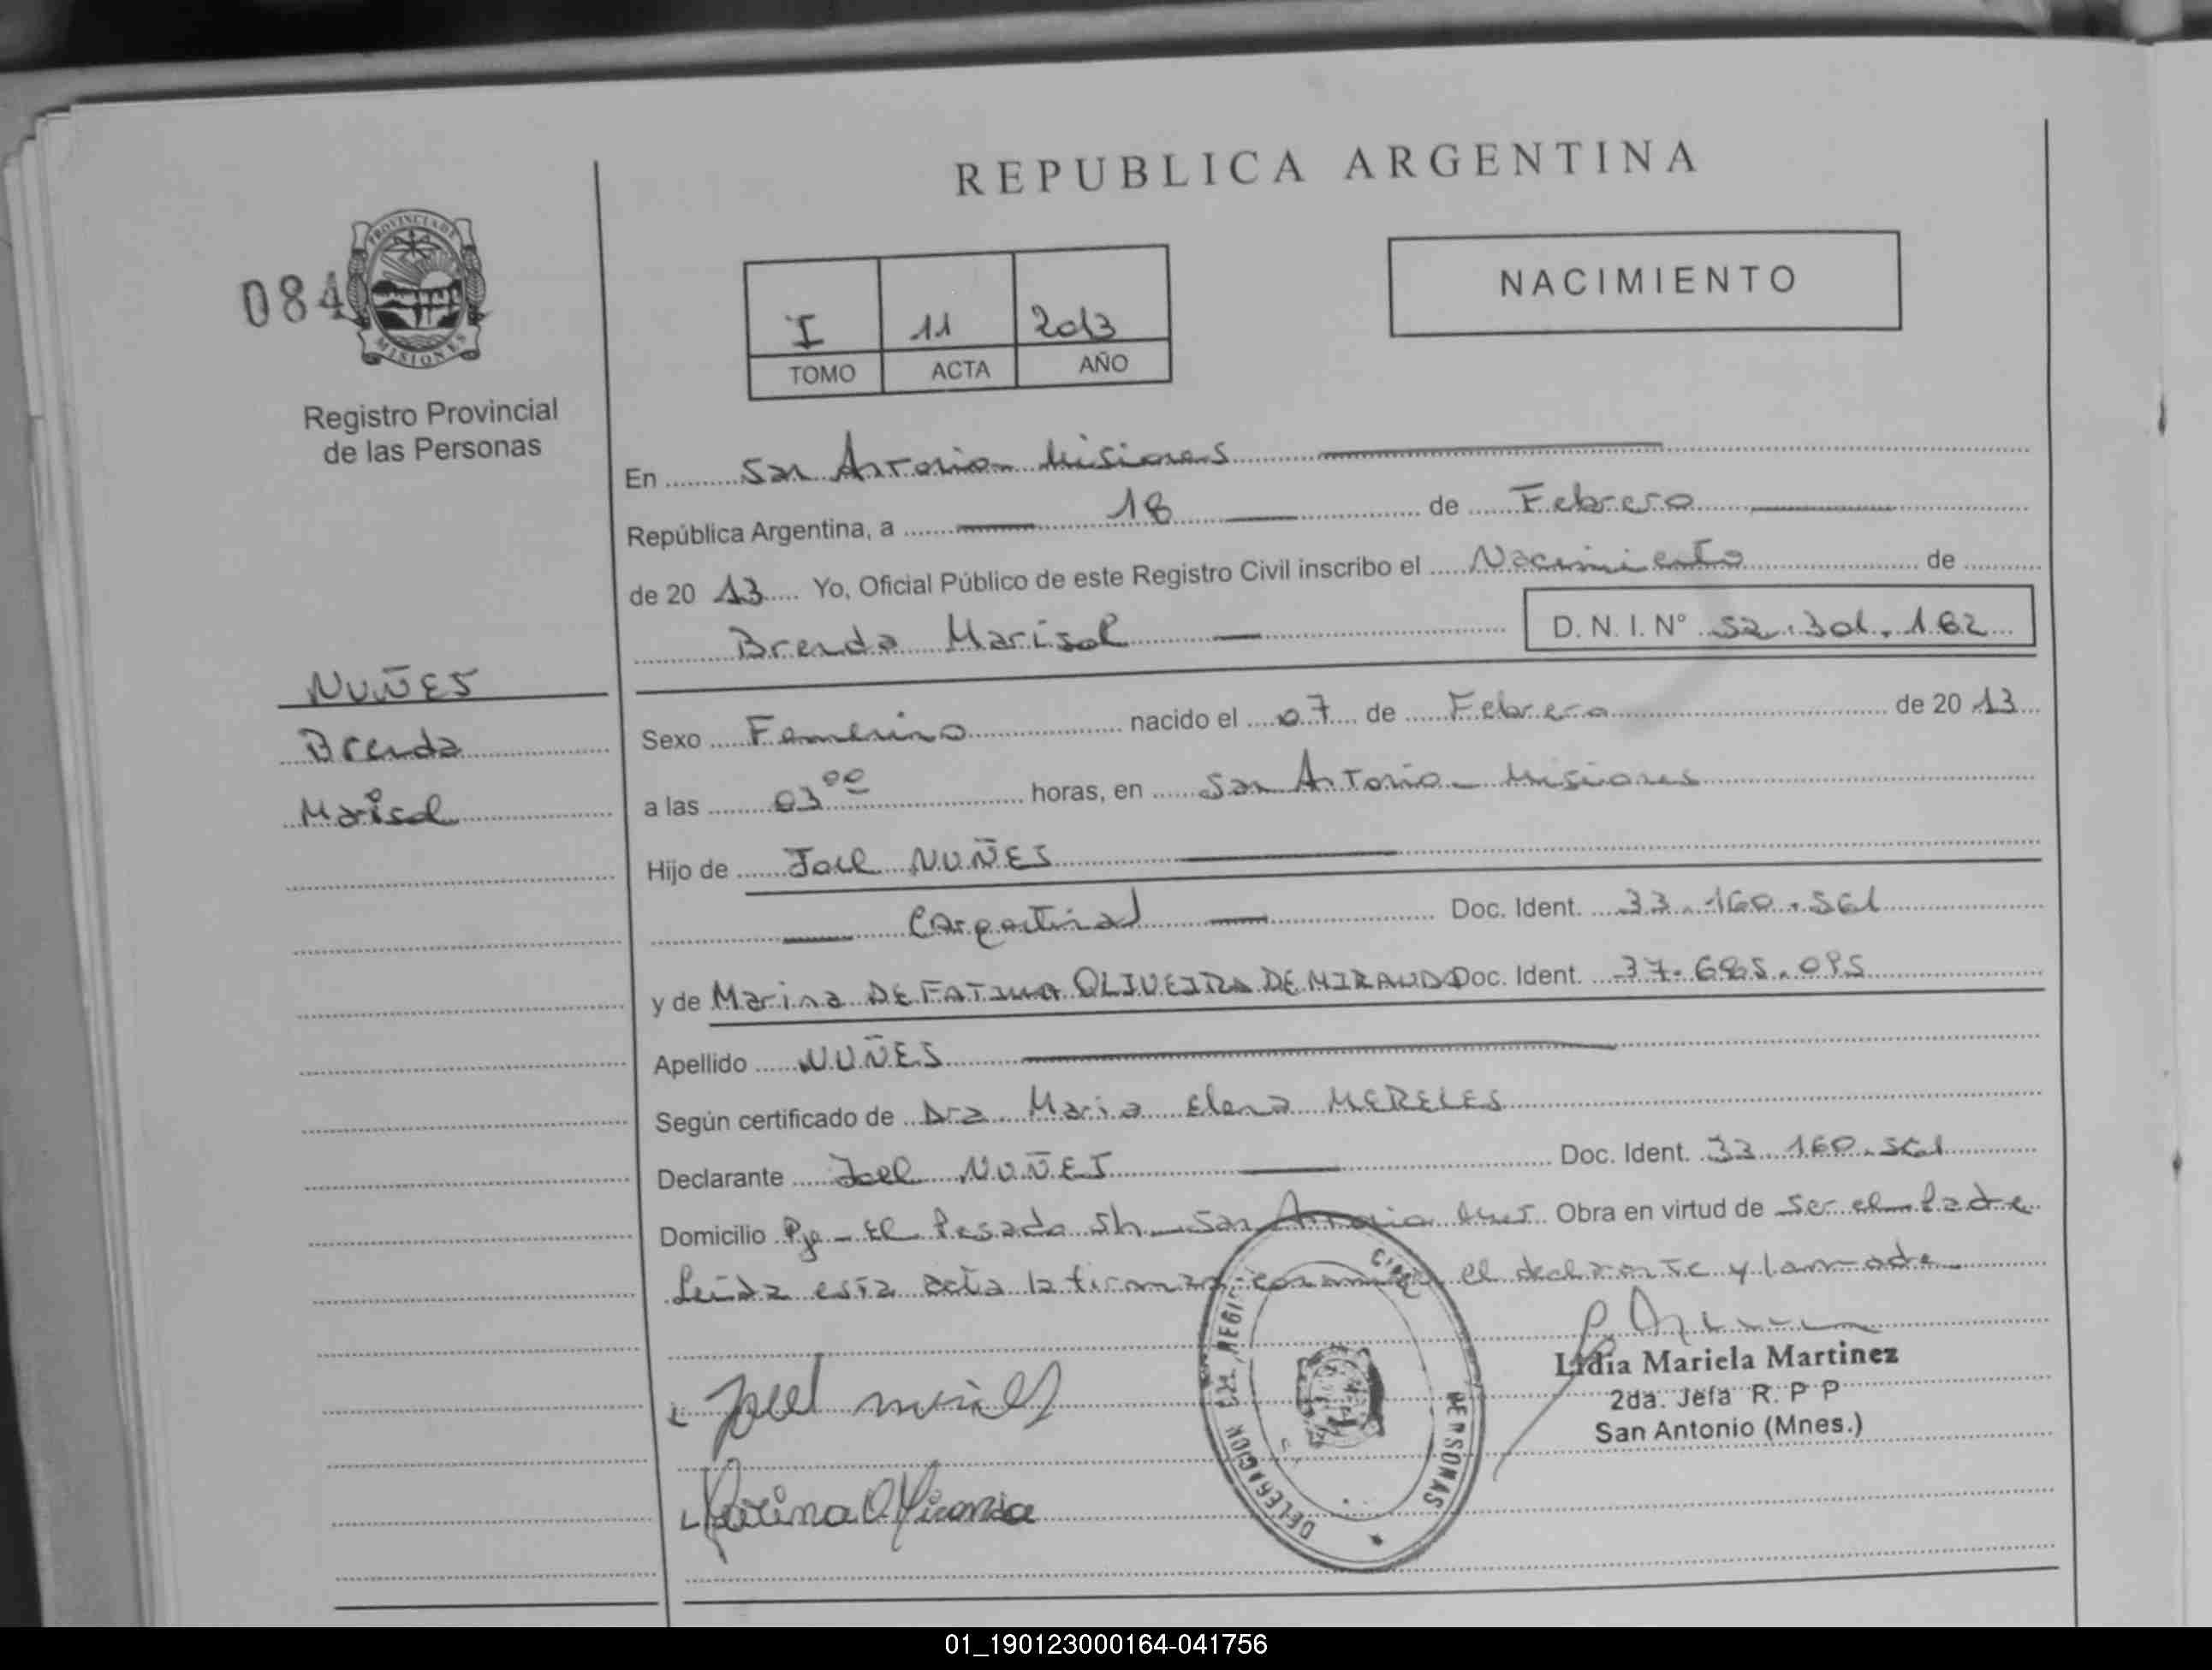 REPUBLICA ARGENTINA
084
PROVINCIA DE
MISIONES
Registro Provincial
de las Personas
I 11 2013
TOMO ACTA AÑO
NACIMIENTO
En San Antonio Misiones
República Argentina, a 18 de Febrero
de 20 13 Yo, Oficial Público de este Registro Civil inscribo el Nacimiento de
Brenda Marisol D. N. I. N° 52.301.162
NUÑES
Brenda
Marisol
Sexo Femenino nacido el 07 de Febrero de 20 13
a las 03 00 horas, en San Antonio - Misiones
Hijo de Joel NUÑES
(Argentina) Doc. Ident. 33.160.561
y de Marina DE FATIMA OLIVEIRA DE MIRANDA Doc. Ident. 37.685.095
Apellido NUÑES
Según certificado de Dra Maria Elena MERELES
Declarante Joel NUÑES Doc. Ident. 33.160.561
Domicilio Pje - El Pesado sn - San Antonio Mnes Obra en virtud de ser el Padre
Leída esta acta la firman conmigo el declarante y la madre
Joel nuñes
Marina O Miranda
DELEGACION DEL REGISTRO
PERSONAS
Lidia Mariela Martinez
2da. Jefa R. P P
San Antonio (Mnes.)
01_190123000164-041756